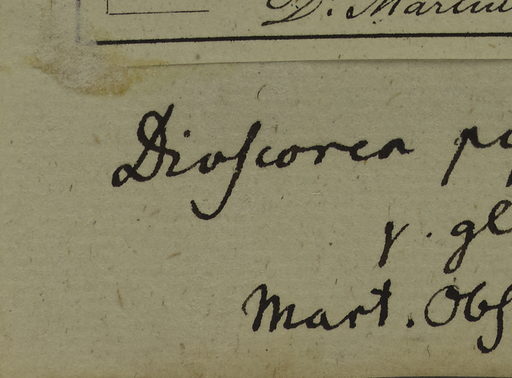 D. Martiu
Dioscorea p
γ. gl
Mart. Obs